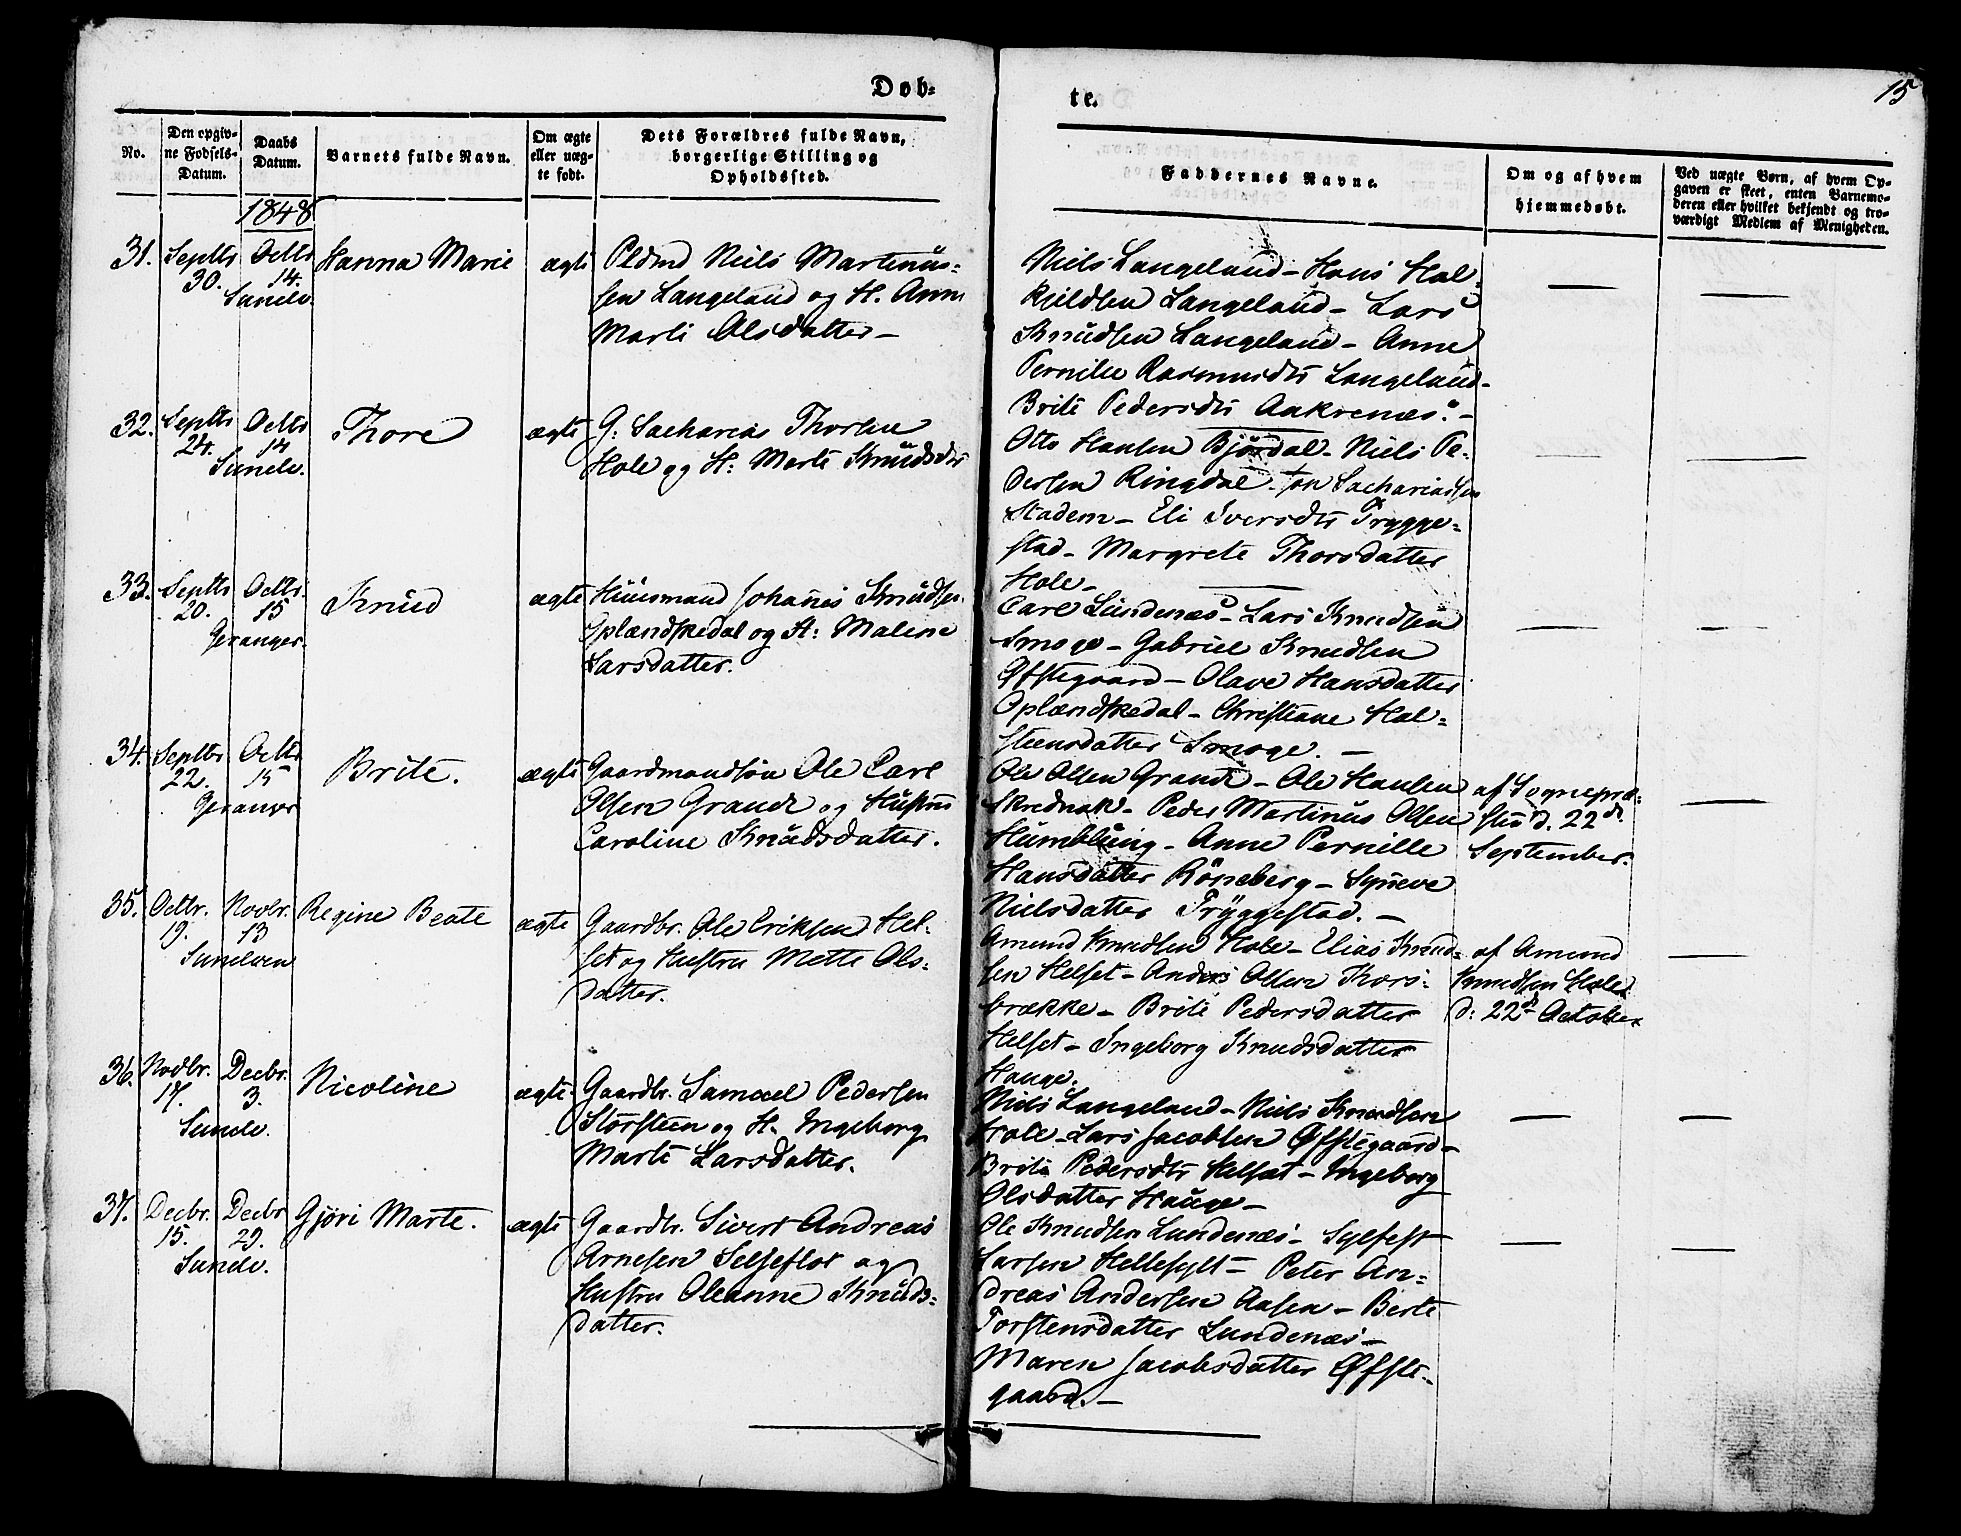 Døb-
te.
15
No.
Den opgiv-
ne Fødsels-
Datum.
Daabs
Datum.
Barnets fulde Navn.
Om ægte
eller uæg-
te født.
Dets Forældres fulde Navn,
borgerlige Stilling og
Opholdssted.
Faddernes Navne.
Om og af hvem
hjemmedøbt.
Ved uægte Børn, af hvem Op-
gaven er skeet, enten Barnemo-
deren eller hvilket bekjendt og tro-
værdigt Medlem af Menigheden.
1848
31.
Septbr
30.
Octbr
14.
Sunelv.
Hanna Marie
ægte
Pldmd Niels Martinus-
sen Langeland og H. Anne
Marte Olsdatter –
Niels Langeland – Hans Hal-
kjeldsen Langeland – Lars
Knudsen Langeland – Anne
Pernille Rasmusdtr Langeland –
Brite Pedersdtr Aakrenæs. –
32.
Septbr
24.
Octbr
14
Sunelv.
Thore
ægte
G: Sacharias Thorsen
Hole og H: Marte Knudsdtr
Otto Hansen Bjørdal – Niels Pe-
dersen Ringdal – Jon Sachariassen
Stadem – Eli Iversdtr Trygge-
stad – Margrete Thorsdatter
Hole –
33.
Septbr
20.
Octbr.
15
Geranger.
Knud
ægte
Huusmand Johanes Knudsen
Oplændskedal og H: Malene
Larsdatter.
Carl Lundenæs – Lars Knudsen
Smoge – Gabriel Knudsen
Øfstegaard – Olave Hansdatter
Oplændskedal – Christiane Hal-
steensdatter Smoge. –
34.
Septbr
22.
Octbr
15
Geranger
Brite.
ægte
Gaardmandsøn Ole Carl
Olsen Grande og Hustru
Caroline Knudsdatter.
Ole Olsen Grande – Ole Hansen
Skrednak – Peder Martinus Olsen
Humblung – Anne Pernille
Hansdatter Röneberg – Syneve
Nielsdatter Tryggestad. –
af Sognepræ-
sten d. 22de
September.
35.
Octbr.
19.
Novbr.
13
Sunelven
Regine Beate
ægte
Gaardbr. Ole Eriksen Hel-
set og Hustru Mette Ols-
datter.
Amund Knudsen Hole – Elias Knud-
sen Helset – Anders Olsen Kors-
brække – Brite Pedersdatter
Helset – Ingeborg Knudsdatter
Hauge.
af Amund
Knudsen Hole
d: 22de October
36.
Novbr.
17.
Decbr.
3.
Sunelv.
Nicoline
ægte
Gaardbr. Samuel Pedersen
Storsteen og H. Ingeborg
Marte Larsdatter.
Niels Langeland – Niels Knudsen
Hole – Lars Jacobsen Øfstegaard –
Brite Pedersdtr Helset – Ingeborg
Olsdatter Hauge –
37.
Decbr.
15.
Decbr
29.
Sunelv.
Gjøri Marte.
ægte
Gaardbr. Sivert Andreas
Arnesen Seljeflot og
Hustru Oleanne Knuds-
datter.
Ole Knudsen Lundenæs – Sylfest
Larsen Hellesylt – Peter An-
dreas Andersen Aasen – Berte
Torstensdatter Lundenæs –
Maren Jacobsdatter Øfste-
gaard. –